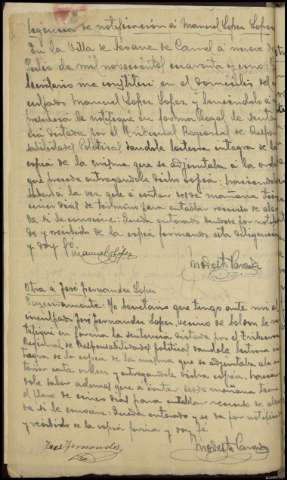 Diligencia de notificación á Manuel López López
En la Villa de Lesane de Carvel á nueve de
Julio de mil novecientos cuarenta y uno: Yo
Secretario me constituí en el domicilio del
culpado Manuel Lopez Lopez y teniendolo a
presencia le notifiqué en forma legal la senten
cia dictada por el Tribunal Regional de Respon
sabilidades Políticas, dandole lectura integra de la
copia de la misma que se adjuntaba a la orden
que precede entregandole dicha copia, haciendole
saber a la vez que á contar desde mañana tiene
cinco dias de termino para entablar recurso de alzada
si le conviene. Queda enterado dandose por notificado
y recibido de la copia firmando esta diligencia
y doy fé.
Manuel López
Modesto
Otra á José Fernandez López
Seguidamente Yo Secretario que tengo ante mi al
inculpado José Fernandez López, vecino de le no
tifiqué en forma la sentencia dictada por el Tribunal
Regional de Responsabilidades políticas dandole lectura in
tegra de la copia de la misma que se adjuntaba a la an
terior carta orden y entregandole dicha copia, hacien
dole saber ademas que á contar desde mañana tiene
el plazo de cinco dias para entablar recurso de alzada
si le conviene. Queda enterado y se da por notificado
y recibido de la copia firma y doy fé
José Fernandez
Modesto